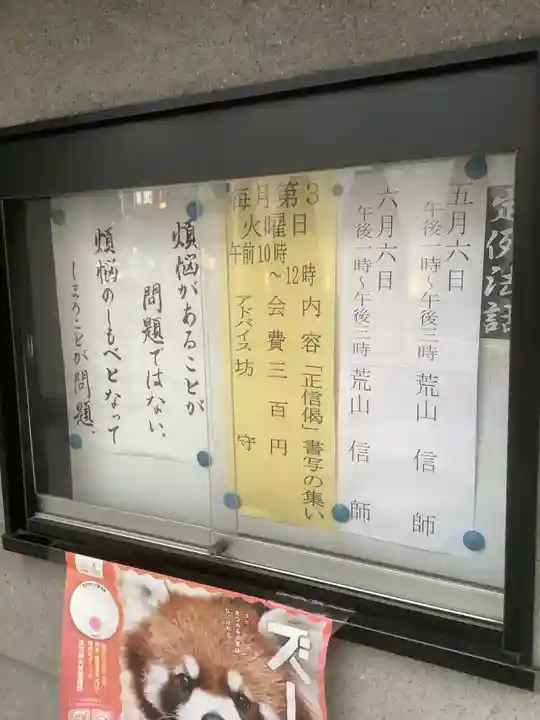 定例法話
五月六日
午後一時～午後三時 荒山 信 師
六月六日
午後一時～午後三時 荒山 信 師
内容「正信偈」書写の集い
毎月第3
火曜日
午前10時
～12時
会費三百円
アドバイス 坊守
煩悩があることが
問題ではない。
煩悩のしもべとなって
しまうことが問題。
ズー